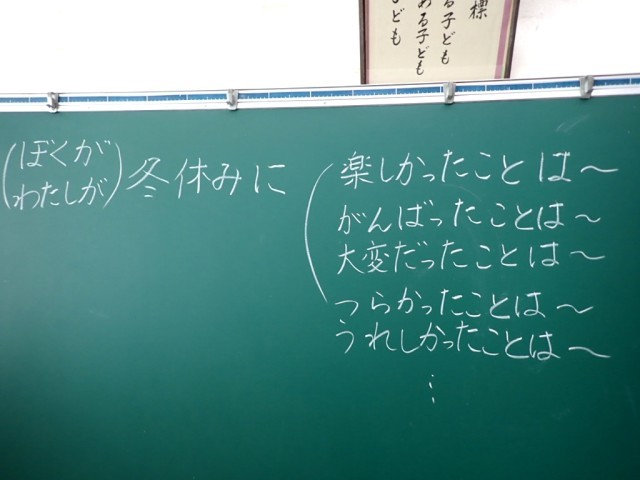 標
る子ども
ある子ども
子ども
(ぼくが
わたしが)
冬休みに
楽しかったことは〜
がんばったことは〜
大変だったことは〜
つらかったことは〜
うれしかったことは〜
⋮